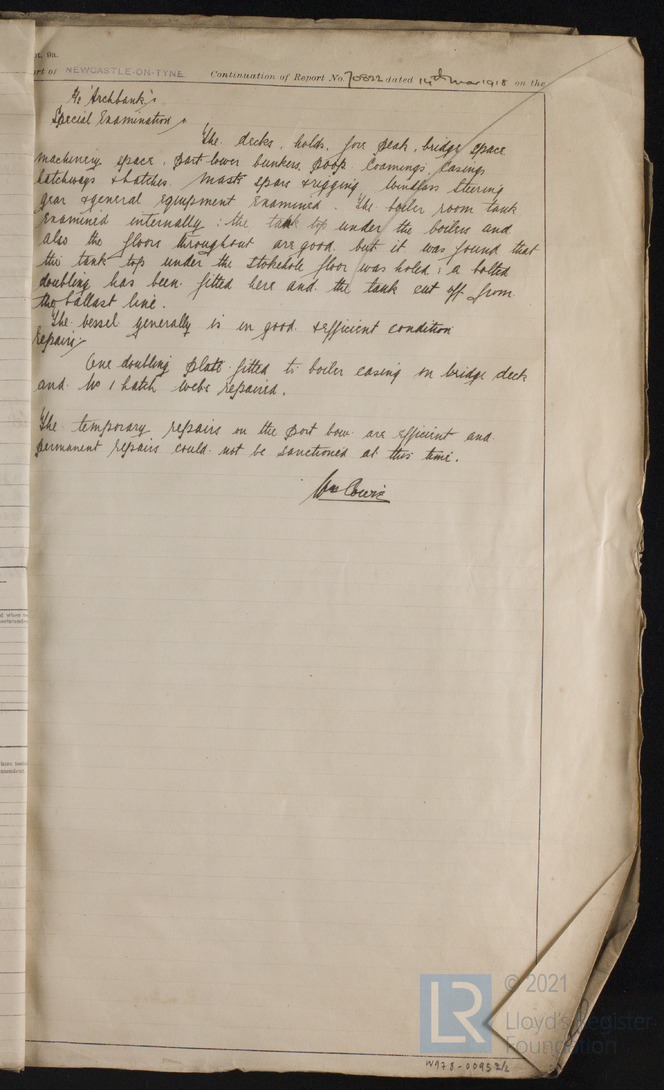 pt. 9a.
ort of NEWCASTLE-ON-TYNE Continuation of Report No. 70822 dated 14th Mar 1918 on the
S/s "Archbank"
Special Examination
The decks, holds, fore peak, bridge space
machinery space, part lower bunkers, poop, coamings, casings
hatchways & hatches. Masts spars & rigging, windlass steering
gear & general equipment examined. The boiler room tank
examined internally: the tank top under the boilers and
also the floors throughout are good but it was found that
the tank top under the stokehole floor was holed; a bolted
doubling has been fitted here and the tank cut off from
the ballast line.
The vessel generally is in good & efficient condition
Repairs
One doubling plate fitted to boiler casing on bridge deck
and No 1 hatch webs repaired.
The temporary repairs on the port bow are efficient and
permanent repairs could not be sanctioned at this time.
Wm Cowie
LR © 2021
Lloyd's Register
Foundation
W978-0095 2/2